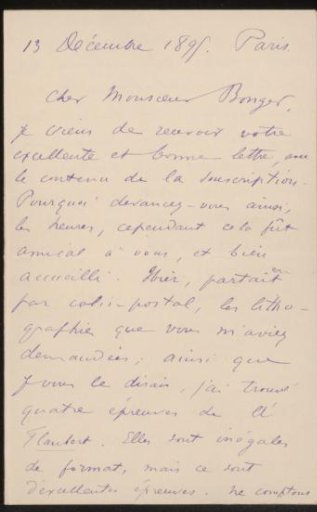 13 Décembre 1895. Paris.
Cher Monsieur Bonger,
je viens de recevoir votre
excellente et bonne lettre, avec
le contenu de la souscription.
Pourquoi devancez-vous ainsi,
les heures, cependant cela fut
amical à vous, et bien
accueilli. Hier, partait
par colis-postal, les litho-
graphies que vous m'aviez
demandées; ainsi que
je vous le disais, j'ai trouvé
quatre épreuves de
Flaubert. Elles sont inégales
de format, mais ce sont
d'excellentes épreuves. Ne comptons